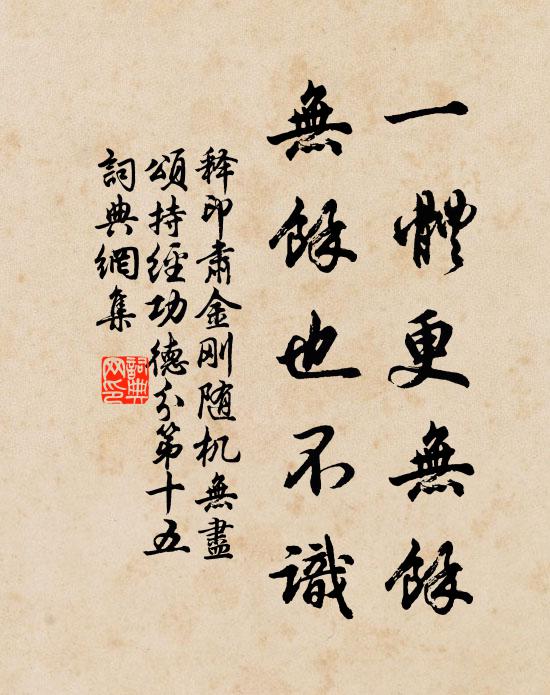 一體更無餘
無餘也不識
释印肃金刚随机無盡
頌持經功德分第十五
詞典網集
詞典
网印